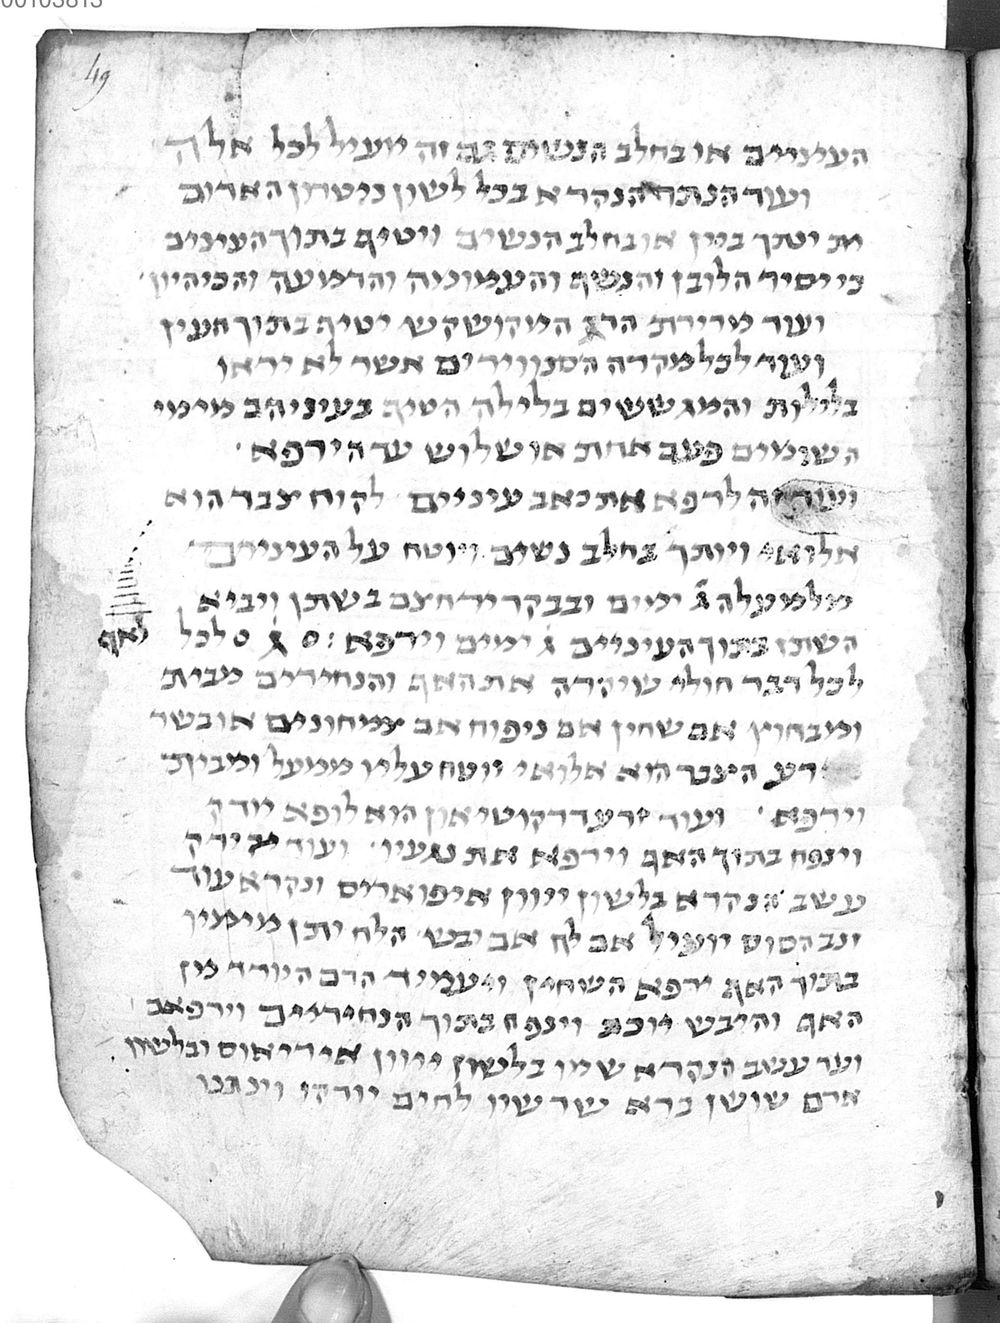 00103813
49
העינויים או בחלב הנשים גם זה יועיל לכל אלה
ועוד הנתר הנקרא בכל לשון ניטרון האדום
יתך ביין או בחלב הנשים ויטיף בתוך העינים
כי יסיר הלובן והנשף והעמומיה והדמועה והכיהיון
ועוד מרירת הדג המקושקש יטיף בתוך העין
ועוד לכל מקרה הסנווירים אשר לא יראו
בלילות והמגששים בלילה הטיף בעיניהם מימי
השומים פעם אחת או שלוש עד הירפא
ועוד זה לרפא את כאב עיניים לקוח צבר הוא
אלואי ויותך בחלב נשים ויוטח על העינים
מלמעלה ג ימים ובבקר ירחצם בשתן ויביא
השתן בתוך העיניים ג ימים וירפא לכל
לאף
לכל דבר חולי שיקרה את האף והנחירים מבית
ומבחוץ אם שחין אם ניפוח אם צמחונים או בשר
רע הצבר הוא אלואי יוטח עליו ממעל ומבין
וירפא ועוד קוטיאון הוא לופא יודק
וינפח בתוך האף וירפא את נגעיו ועוד
עשב הנקרא בלשון ייוון איפואריס ונקרא עוד
זנב הסוס יועיל אם לח אם יבש הלח יתן מימיו
בתוך האף ירפא השחין ויעמיד הדם היורד מן
האף והיבש יוכת וינפח בתוך הנחיריים וירפאם
ועד עשב הנקרא שמו בלשון ייוון איריאוס ובלשון
ארם שושן ברא שרשיו לחים יודקו וינתנו